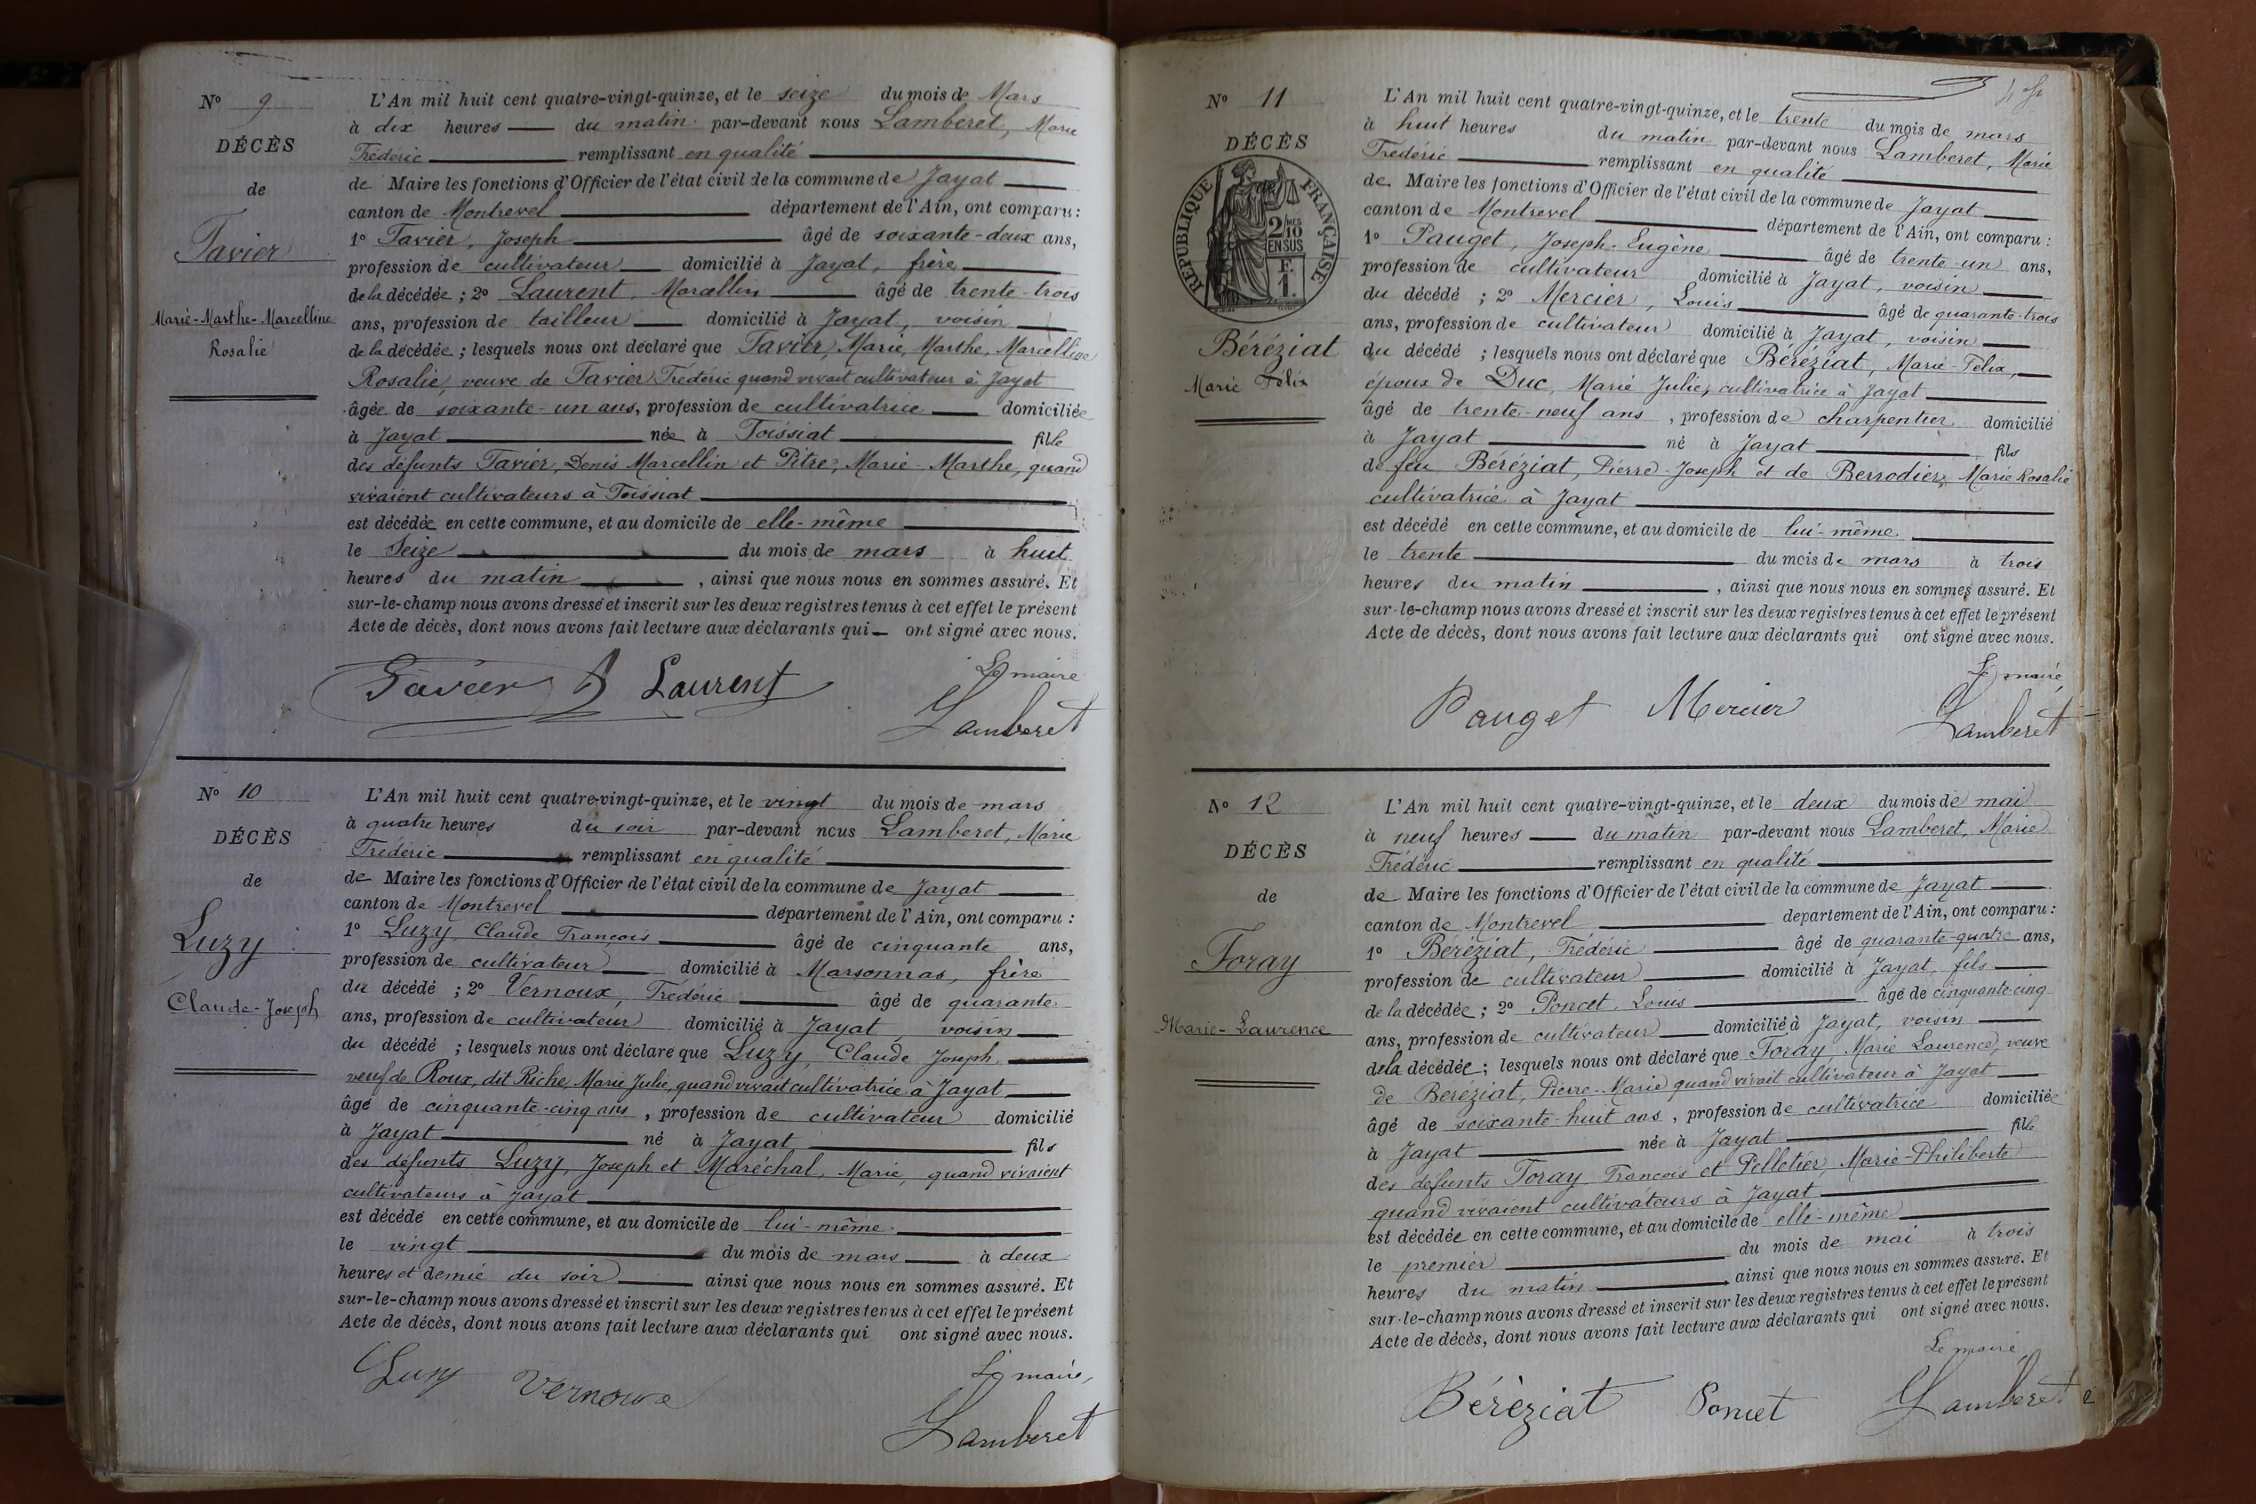 N° 9
DÉCÈS
de
Tavier
Marie-Marthe-Marcelline
Rosalie
L'An mil huit cent quatre-vingt-quinze, et le seize du mois de Mars
à dix heures du matin par-devant nous Lamberet, Marie
Frédéric remplissant en qualité
de Maire les fonctions d'Officier de l'état civil de la commune de Jayat
canton de Montrevel département de l'Ain, ont comparu :
1° Tavier, Joseph âgé de soixante-deux ans,
profession de cultivateur domicilié à Jayat, frère
de la décédée ; 2° Laurent, Marcellin âgé de trente-trois
ans, profession de tailleur domicilié à Jayat, voisin
de la décédée ; lesquels nous ont déclaré que Tavier, Marie, Marthe, Marcelline
Rosalie, veuve de Tavier Frédéric quand vivait cultivateur à Jayat
âgée de soixante-un ans, profession de cultivatrice domiciliée
à Jayat née à Foissiat fille
des défunts Tavier, Denis Marcellin et Pitre, Marie-Marthe, quand
vivaient cultivateurs à Foissiat
est décédée en cette commune, et au domicile de elle-même
le Seize du mois de mars à huit
heures du matin, ainsi que nous nous en sommes assuré. Et
sur-le-champ nous avons dressé et inscrit sur les deux registres tenus à cet effet le présent
Acte de décès, dont nous avons fait lecture aux déclarants qui ont signé avec nous.
Le maire
Tavier Laurent Lamberet
N° 10
DÉCÈS
de
Luzy
Claude-Joseph
L'An mil huit cent quatre-vingt-quinze, et le vingt du mois de mars
à quatre heures du soir par-devant nous Lamberet, Marie
Frédéric remplissant en qualité
de Maire les fonctions d'Officier de l'état civil de la commune de Jayat
canton de Montrevel département de l'Ain, ont comparu :
1° Luzy, Claude François âgé de cinquante ans,
profession de cultivateur domicilié à Marsonnas, frère
du décédé ; 2° Vernoux, Frédéric âgé de quarante
ans, profession de cultivateur domicilié à Jayat, voisin
du décédé ; lesquels nous ont déclaré que Luzy, Claude Joseph
veuf de Roux, dit Riche, Marie Julie, quand vivait cultivatrice à Jayat
âgé de cinquante-cinq ans, profession de cultivateur domicilié
à Jayat né à Jayat fils
des défunts Luzy, Joseph et Maréchal, Marie, quand vivaient
cultivateurs à Jayat
est décédé en cette commune, et au domicile de lui-même
le vingt du mois de mars à deux
heures et demie du soir ainsi que nous nous en sommes assuré. Et
sur-le-champ nous avons dressé et inscrit sur les deux registres tenus à cet effet le présent
Acte de décès, dont nous avons fait lecture aux déclarants qui ont signé avec nous.
Le maire,
Luzy Vernoux Lamberet
N° 11
DÉCÈS
RÉPUBLIQUE FRANÇAISE
2/10 MES
EN SUS
F.
1.
Béréziat
Marie Félix
L'An mil huit cent quatre-vingt-quinze, et le trente du mois de mars
à huit heures du matin par-devant nous Lamberet, Marie
Frédéric remplissant en qualité
de Maire les fonctions d'Officier de l'état civil de la commune de Jayat
canton de Montrevel département de l'Ain, ont comparu :
1° Pauget, Joseph-Eugène âgé de trente-un ans,
profession de cultivateur domicilié à Jayat, voisin
du décédé ; 2° Mercier, Louis âgé de quarante-trois
ans, profession de cultivateur domicilié à Jayat, voisin
du décédé ; lesquels nous ont déclaré que Béréziat, Marie-Félix,
époux de Duc, Marie Julie, cultivatrice à Jayat
âgé de trente-neuf ans, profession de charpentier domicilié
à Jayat né à Jayat fils
de feu Béréziat, Pierre-Joseph et de Berrodier, Marie Rosalie
cultivatrice à Jayat
est décédé en cette commune, et au domicile de lui-même
le trente du mois de mars à trois
heures du matin, ainsi que nous nous en sommes assuré. Et
sur-le-champ nous avons dressé et inscrit sur les deux registres tenus à cet effet le présent
Acte de décès, dont nous avons fait lecture aux déclarants qui ont signé avec nous.
Le maire,
Pauget Mercier Lamberet
N° 12
DÉCÈS
de
Foray
Marie-Laurence
L'An mil huit cent quatre-vingt-quinze, et le deux du mois de mai
à neuf heures du matin par-devant nous Lamberet, Marie
Frédéric remplissant en qualité
de Maire les fonctions d'Officier de l'état civil de la commune de Jayat
canton de Montrevel département de l'Ain, ont comparu :
1° Béréziat, Frédéric âgé de quarante-quatre ans,
profession de cultivateur domicilié à Jayat, fils
de la décédée ; 2° Poncet, Louis âgé de cinquante-cinq
ans, profession de cultivateur domicilié à Jayat, voisin
de la décédée ; lesquels nous ont déclaré que Foray, Marie Laurence, veuve
de Béréziat, Pierre-Marie quand vivait cultivateur à Jayat
âgé de soixante-huit ans, profession de cultivatrice domiciliée
à Jayat née à Jayat fille
des défunts Foray, François et Pelletier, Marie-Philiberte
quand vivaient cultivateurs à Jayat
est décédée en cette commune, et au domicile de elle-même
le premier du mois de mai à trois
heures du matin, ainsi que nous nous en sommes assuré. Et
sur-le-champ nous avons dressé et inscrit sur les deux registres tenus à cet effet le présent
Acte de décès, dont nous avons fait lecture aux déclarants qui ont signé avec nous.
Le maire,
Béréziat Poncet Lamberet